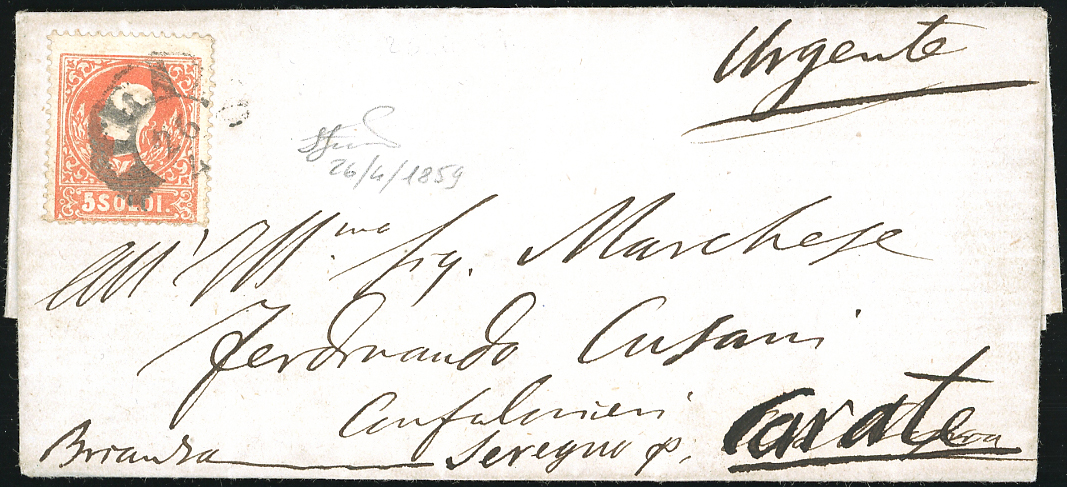 Urgente
26
26/4/1859
5 SOLDI
All' Ill.mo Sig. Marchese
Ferdinando Cusani
Confalonieri
Brianza Seregno p. Carate